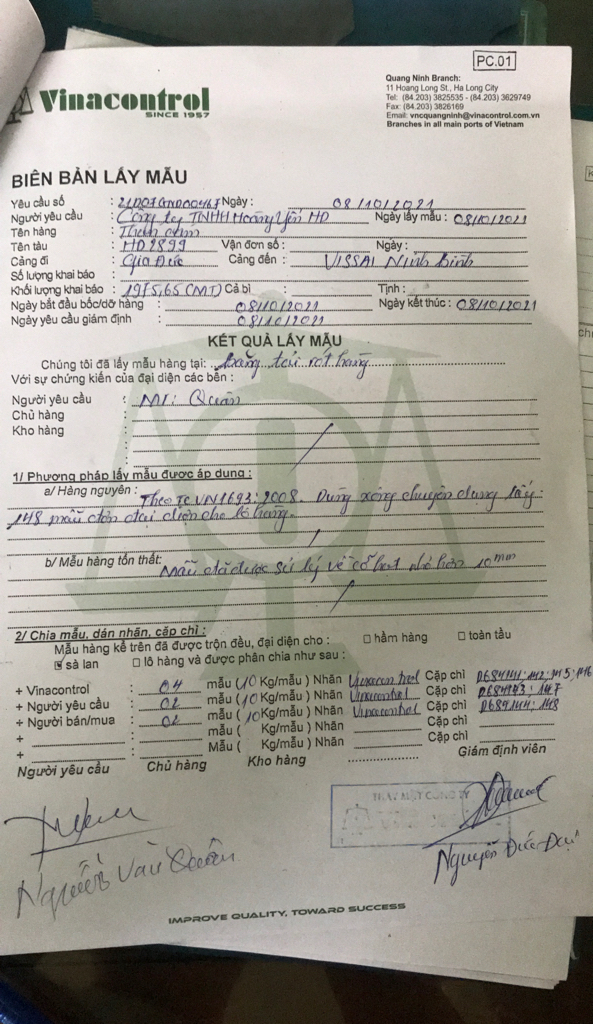 PC.01
Vinacontrol
SINCE 1957
Quang Ninh Branch:
11 Hoang Long St., Ha Long City
Tel: (84.203) 3825535 - (84.203) 3629749
Fax: (84.203) 3826169
Email: vncquangninh@vinacontrol.com.vn
Branches in all main ports of Vietnam
BIÊN BẢN LẤY MẪU
Yêu cầu số : 21D07GND00467 Ngày: 08/10/2021
Người yêu cầu : Công ty TNHH Hoàng Yến HD Ngày lấy mẫu : 08/10/2021
Tên hàng : Than cám
Tên tàu : HD2899 Vận đơn số : Ngày :
Cảng đi : Gia Đức Cảng đến : VISSAI Ninh Bình
Số lượng khai báo :
Khối lượng khai báo : 1975,65 (MT) Cả bì : Tịnh :
Ngày bắt đầu bốc/dỡ hàng 08/10/2021 Ngày kết thúc : 08/10/2021
Ngày yêu cầu giám định 08/10/2021
KẾT QUẢ LẤY MẪU
Chúng tôi đã lấy mẫu hàng tại: Băng tải rót hàng
Với sự chứng kiến của đại diện các bên :
Người yêu cầu : Mr: Quân
Chủ hàng :
Kho hàng :
1/ Phương pháp lấy mẫu được áp dụng :
a/ Hàng nguyên : Theo TCVN1693:2008. Dùng xẻng chuyên dụng lấy
148 mẫu đơn đại diện cho lô hàng.
b/ Mẫu hàng tổn thất: Mẫu đã được sử lý về cỡ hạt nhỏ hơn 10mm
2/ Chia mẫu, dán nhãn, cặp chì :
Mẫu hàng kể trên đã được trộn đều, đại diện cho : □ hầm hàng □ toàn tầu
☑ sà lan □ lô hàng và được phân chia như sau :
+ Vinacontrol : 04 mẫu (10 Kg/mẫu ) Nhãn Vinacontrol Cặp chì D684141;142;145;146
+ Người yêu cầu : 02 mẫu (10 Kg/mẫu ) Nhãn Vinacontrol Cặp chì D684143; 147
+ Người bán/mua : 02 mẫu (10 Kg/mẫu ) Nhãn Vinacontrol Cặp chì D684144; 148
+ : mẫu ( Kg/mẫu ) Nhãn Cặp chì
+ : Mẫu ( Kg/mẫu ) Nhãn Cặp chì
Người yêu cầu Chủ hàng Kho hàng Giám định viên
THAY MẶT CÔNG TY
Nguyễn Văn Quân
Nguyễn Đức Đại
IMPROVE QUALITY, TOWARD SUCCESS